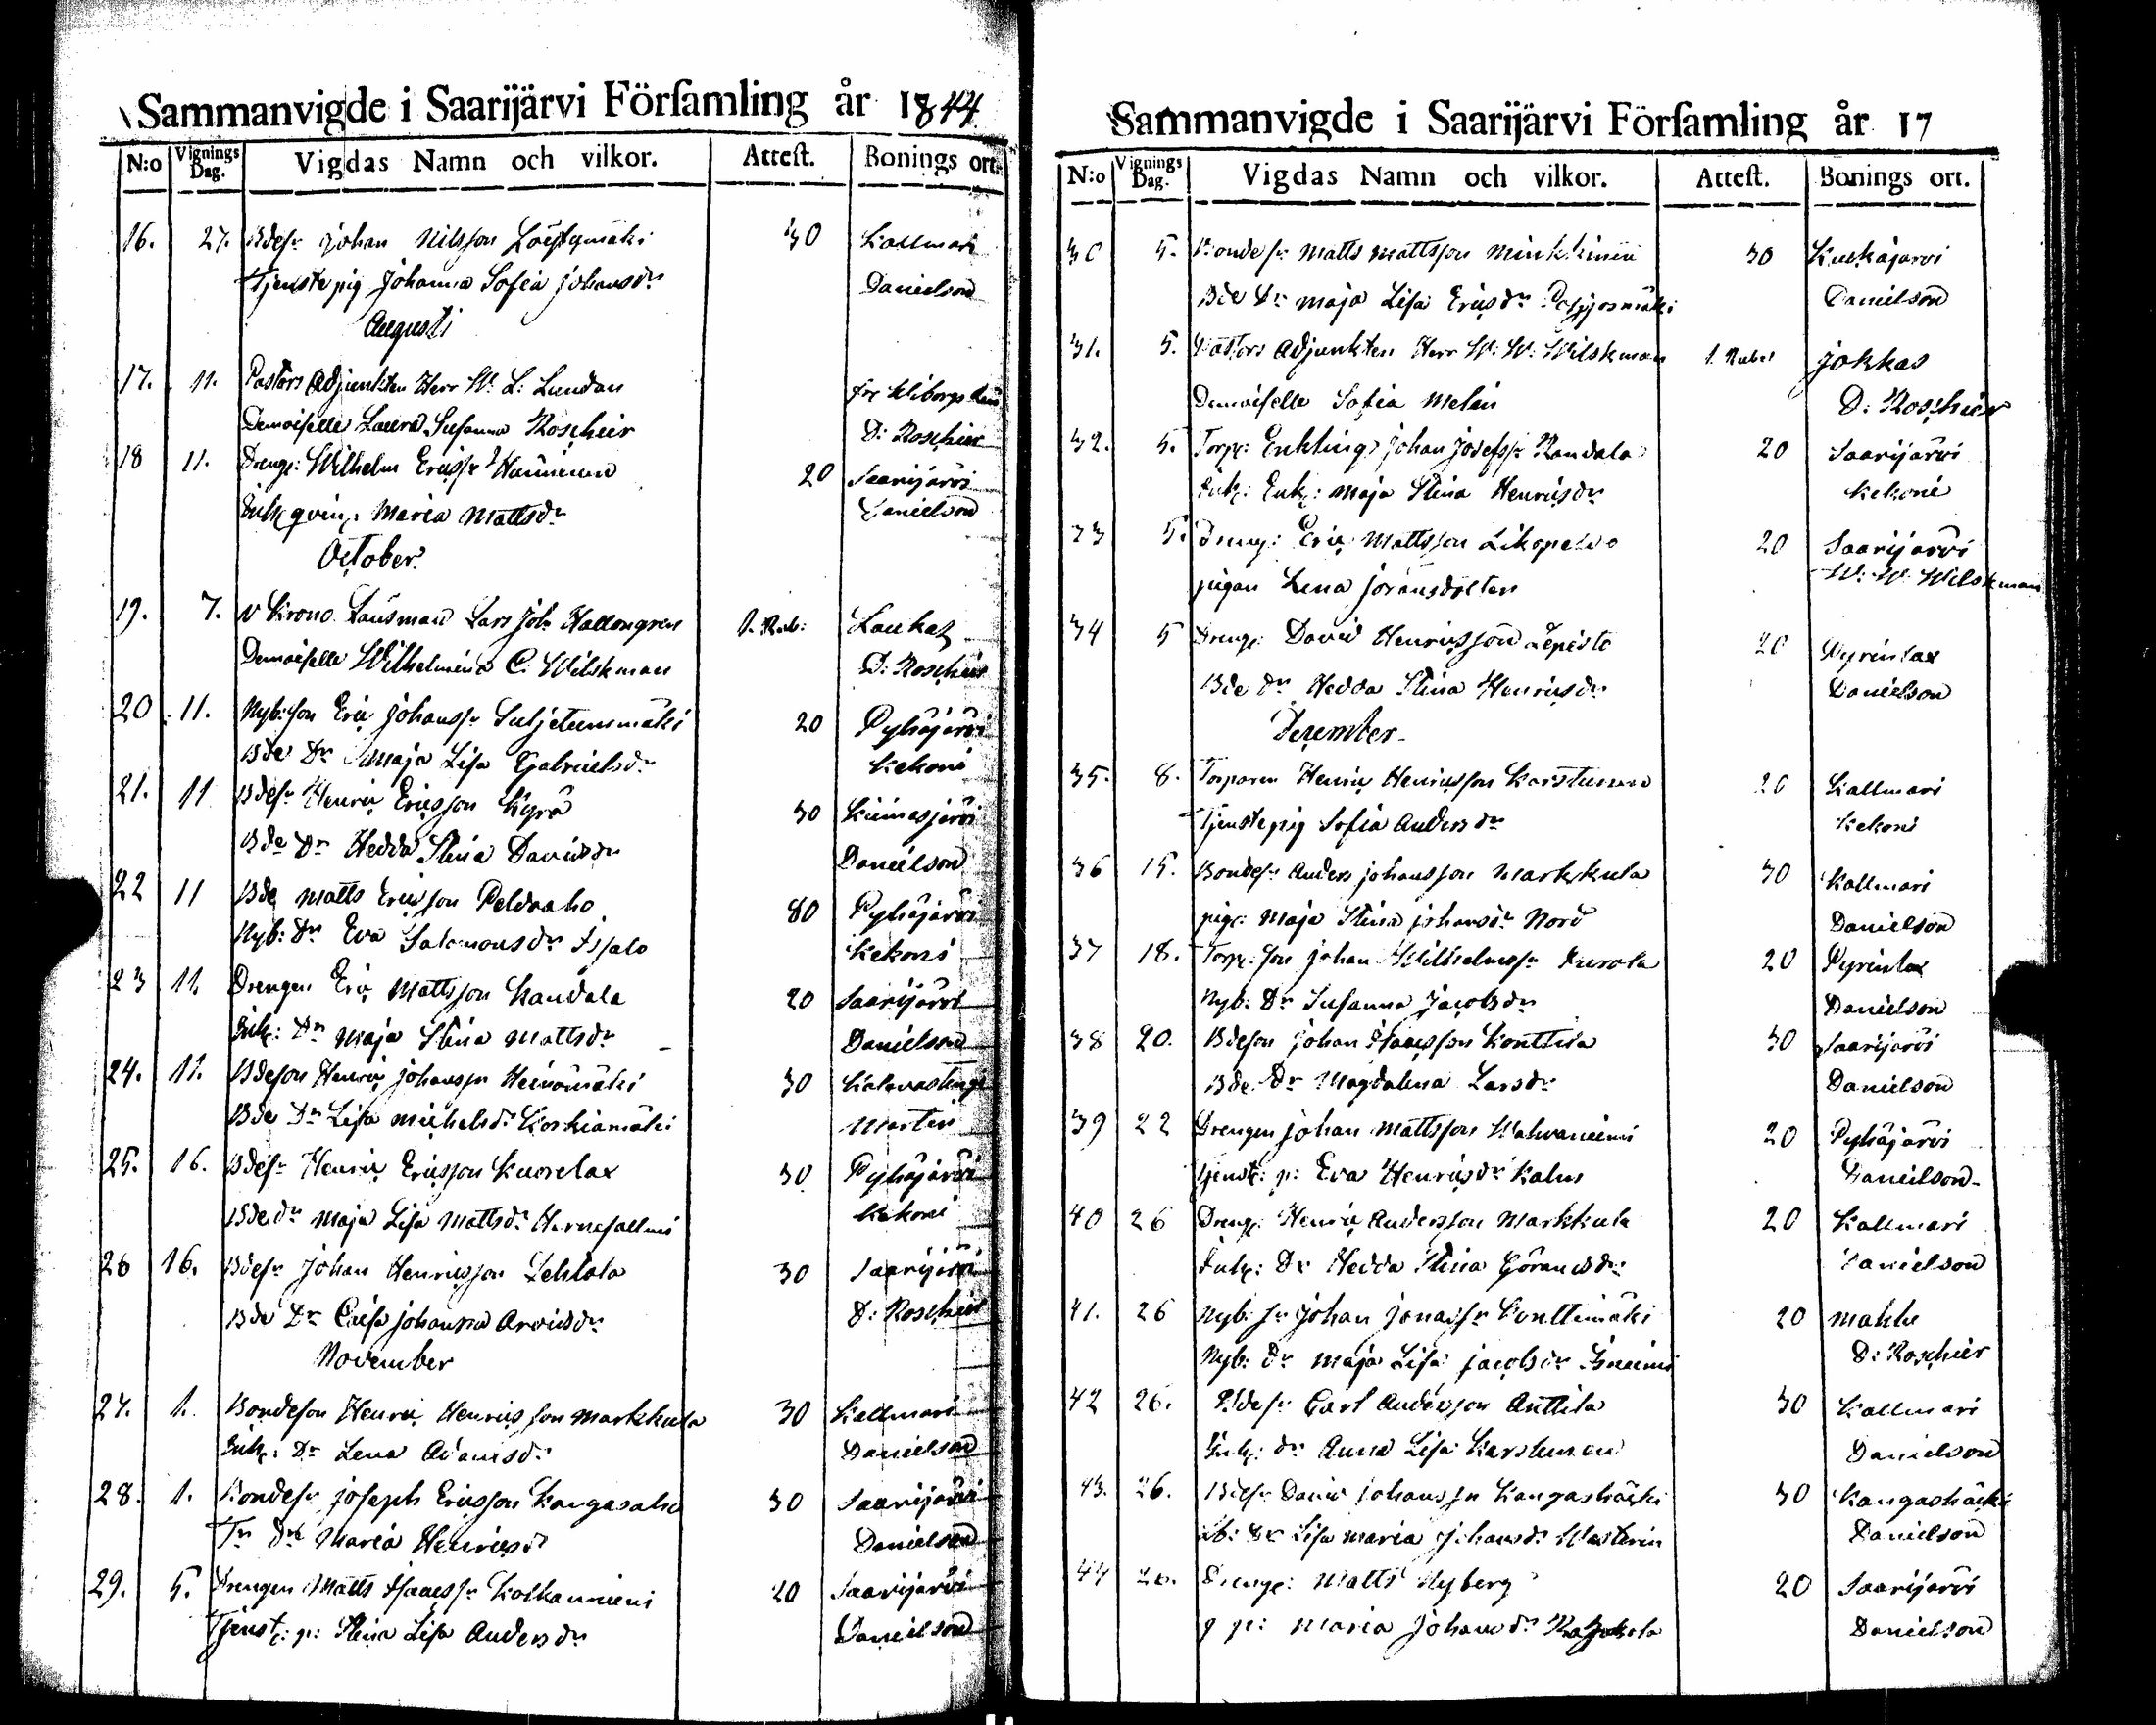 Sammanvigde i Saarijärvi Förſamling år 1844.
N:o Vignings Dag. Vigdas Namn och vilkor. Atteſt. Bonings ort.
16. 27. Bdeſn Johan Nilsſon 30 Kallmari
Tjenstepig Johanna Sofia Johansdr Danielson
Augusti
17. 11. Pastors Adjunkten Herr W. L. Lundan
Demoiſelle Laura Suſanna Roschier D: Roschier
18 11. Dreng: Wilhelm Ericsſn Hänninen 20 Saarijärvi
Maria Mattsdr Danielson
October
19. 7. v Krono Länsman Lars Joh Hallongren 1. Rub: Laukas
Demoiſelle Wilhelmina C. Wilskman D: Roschier
20 11. Nyb:ſon Eric Johansſn 20 Pyhäjärvi
Bde Dr Maja Liſa Gabrielsdr Kekoni
21. 11 Bdeſn Henric Ericsſon Kyrö 30 Kiimasjärvi
Bde Dr Hedda Stina Davidsdr Danielson
22 11 Bde Matts Ericsſon Peldoaho 80 Pyhäjärvi
Nyb: Dr Eva Salomonsdr Kekoni
23 11. Drengen Eric Mattsſon Kandala 20 Saarijärvi
Inh: Dr Maja Stina Mattsdr Danielson
24. 11. Bdeſon Henric Johansſn Heinämäki 30
Bde Dr Liſa Michelsdr Koskiamäki Martin
25. 16. Bdeſn Henric Ericsſon Kuorelax 30 Pyhäjärvi
Bde dr Maja Liſa Mattsdr Herneſallmi Kekoni
26 16. Bdeſn Johan Henricsſon Lehtola 30 Saarijärvi
Bde Dr Caiſa Johanna Arvidsdr D: Roschier
November
27. 1. Bondeſon Henric Henricsſon Markkula 30 Kallmari
Inh: Dr Lena Adamsdr Danielson
28. 1. Bondeſn Joſeph Ericsſon Kangasaho 30 Saarijärvi
Tr Dr Maria Henricsd Danielson
29. 5. Drengen Matts Iſaacsſn Kolkanniemi 20 Saarijärvi
Tjenst: p: Stina Liſa Andersdr Danielson
Sammanvigde i Saarijärvi Förſamling år 17
N:o Vignings Dag. Vigdas Namn och vilkor. Atteſt. Bonings ort.
30 5. Bondeſn Matts Mattsſon Minkkinen 30
Bde Dr Maja Liſa Ericsdr Danielson
31. 5. Pastors Adjunkten Herr W: W: Wilskman 1. Rub: Jokkas
Demoiſelle Sofia Melin D: Roschier
32. 5. Torp: Enkling Johan Joſefsſn Kandala 20 Saarijärvi
Inh: Enk: Maja Stina Henricsdr Kekoni
33 5. Dreng: Eric Mattsſon 20 Saarijärvi
pigan Lena Göransdotter W: W: Wilskman
34 5 Dreng: David Henricsſon Lepistö 20 Pyrinlax
Bde dr Hedda Stina Henricsdr Danielson
December
35. 8. Torparen Henric Henricsſon Karstunen 20 Kallmari
Tjenstepig Sofia Andersdr Kekoni
36 15. Bondeſn Anders Johansſon Markkula 30 Kallmari
pig: Maja Stina Johansdr Nord Danielson
37 18. Torp: ſon Johan Wilhelmsſn 20 Pyrinlax
Nyb: Dr Suſanna Jacobsdr Danielson
38 20. Bdeſon Johan Iſaacsſon Konttila 30 Saarijärvi
Bde Dr Magdalena Larsdr Danielson
39 22 Drengen Johan Mattsſon Wahvaniemi 20 Pyhäjärvi
tjenst: p: Eva Henricsdr Kalm Danielson
40 26 Dreng: Henric Andersſon Markkula 20 Kallmari
Inh: Dr Hedda Stina Göransdr Danielson
41. 26 Nyb: ſn Johan Jonasſn Konttimäki 20 Mahlu
Nyb: dr Maja Liſa Jacobsdr D: Roschier
42 26. Bdeſn Carl Andersſon Anttila 30 Kallmari
Inh: dr Anna Liſa Karstunen Danielson
43. 26. Bdeſn David Johansſn Kangashäcki 30 Kangashäcki
Dr Liſa Maria Johansdr Westerin Danielson
44 26. Dreng: Matts Nyberg 20 Saarijärvi
p: Maria Johansdr Danielson